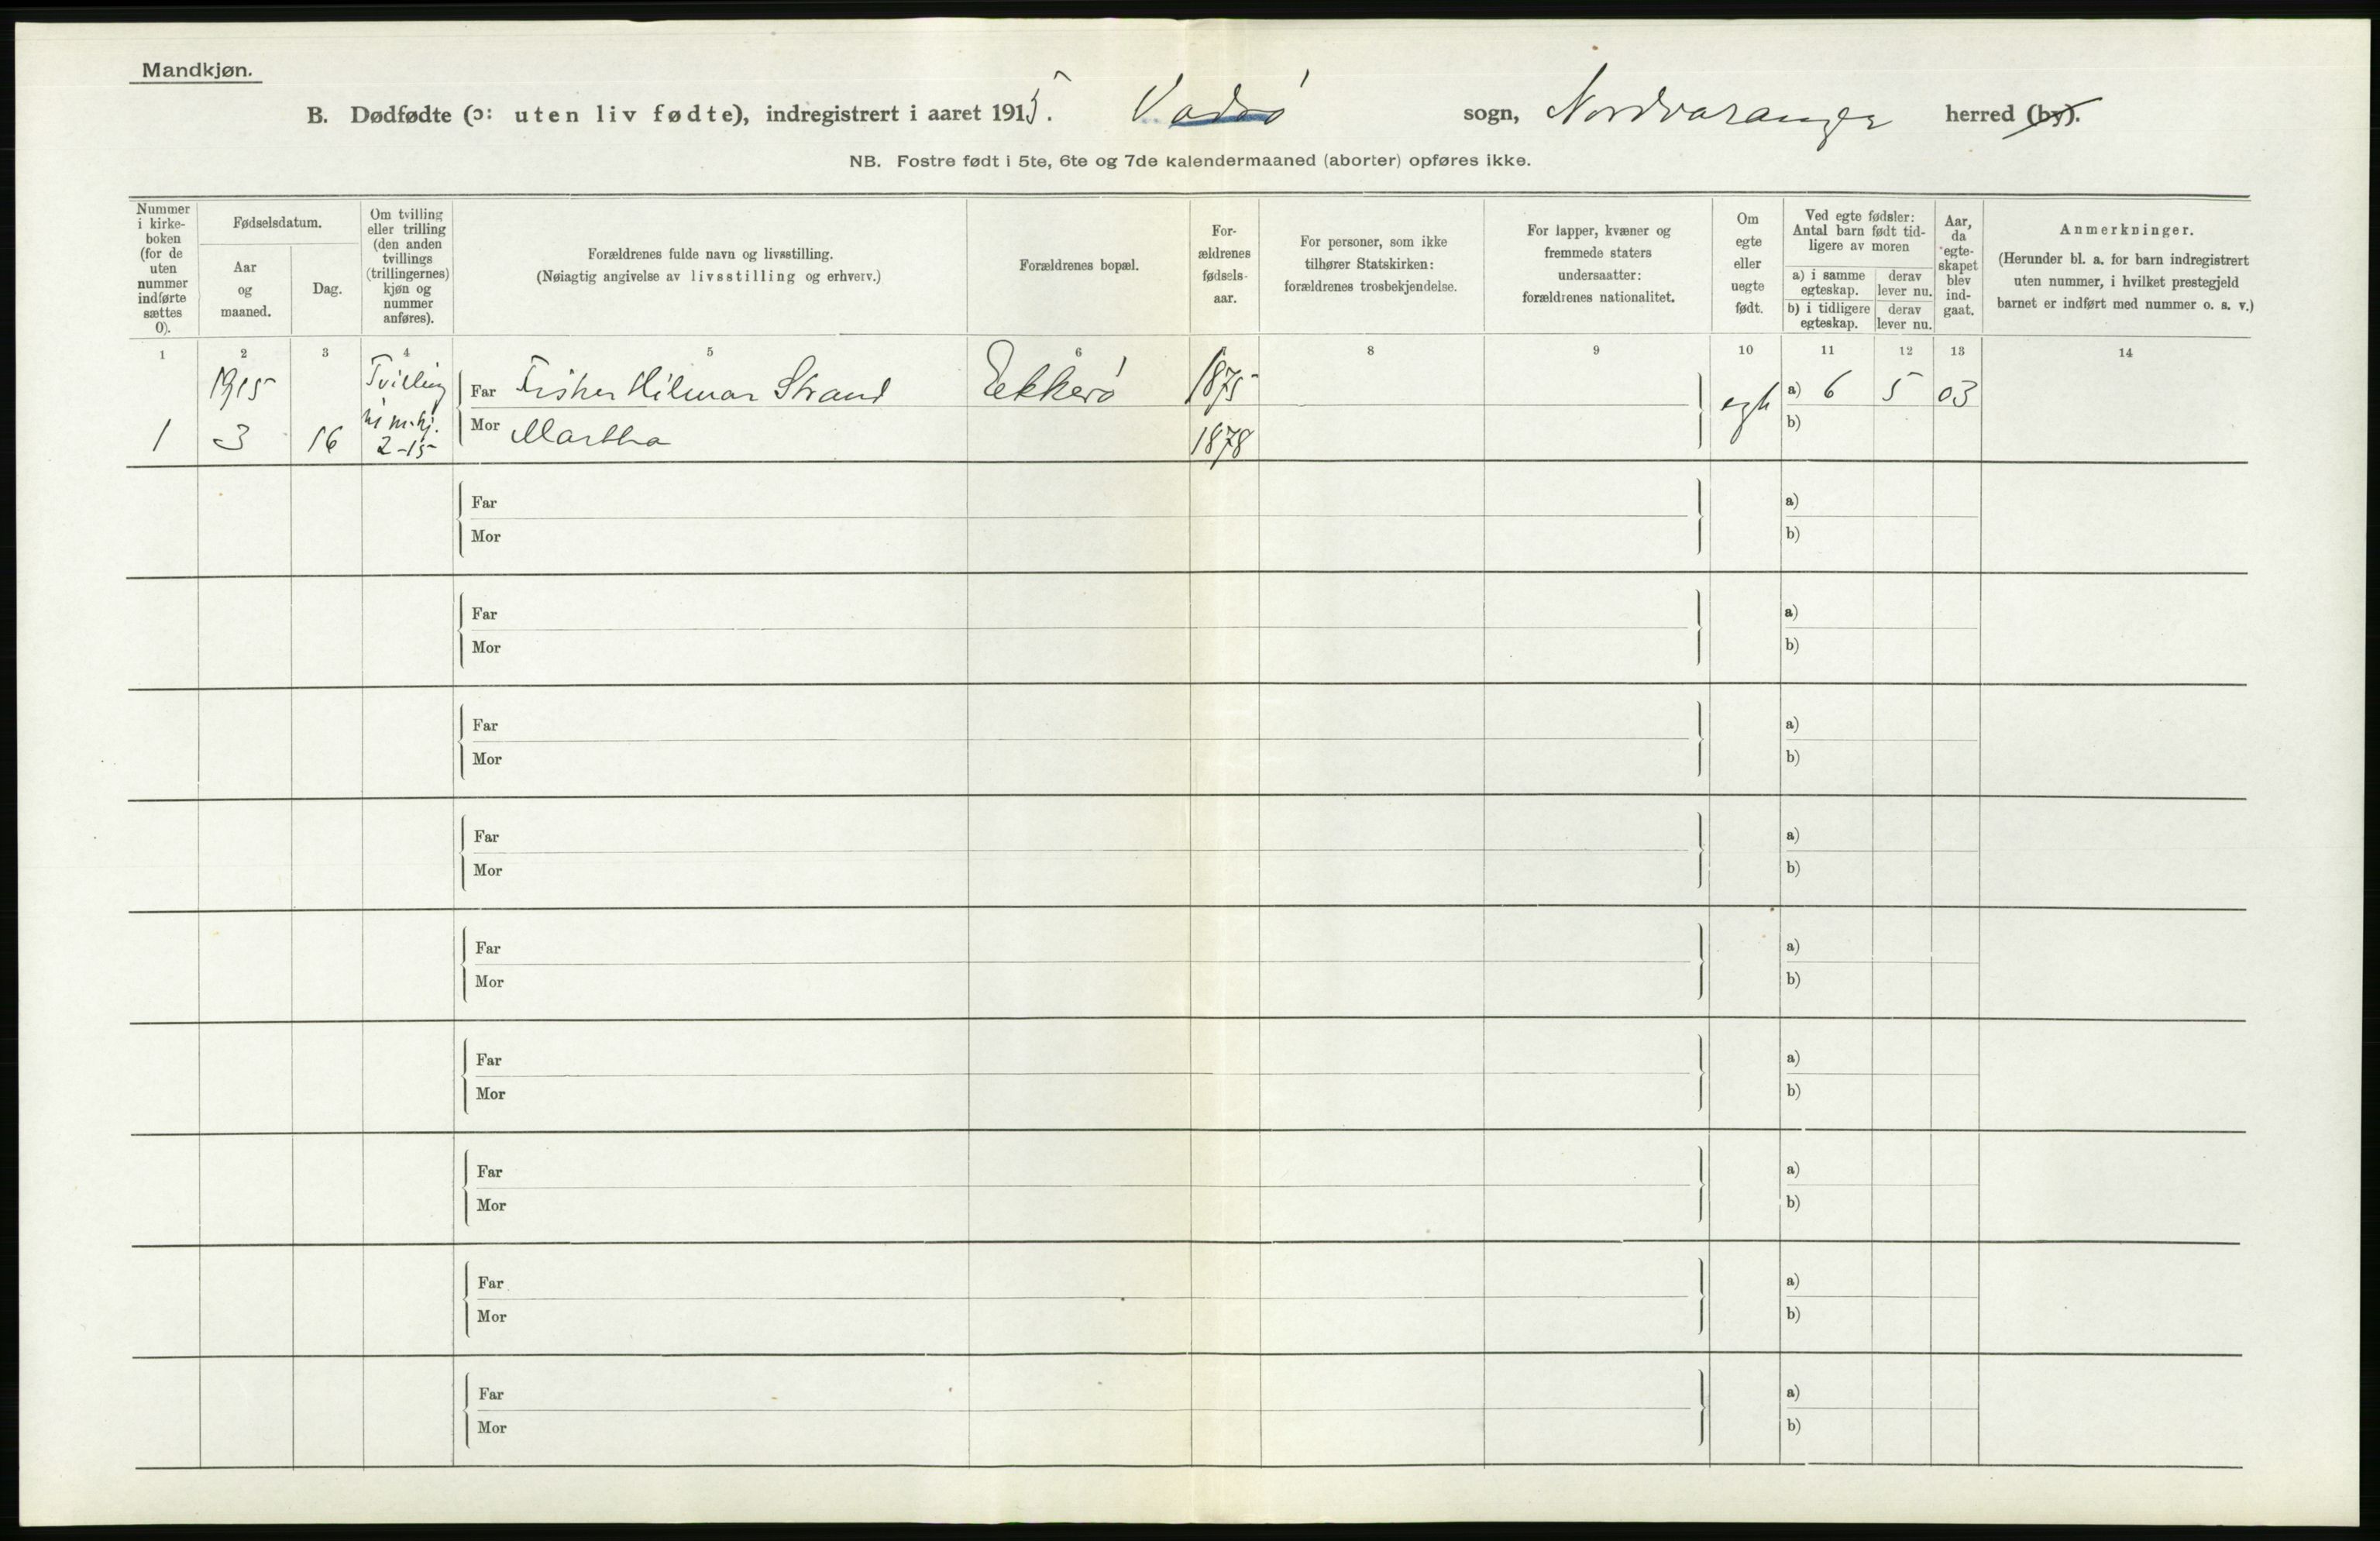 Mandkjøn.
B. Dødfødte (ɔ: uten liv fødte), indregistrert i aaret 1915. Vadsø sogn, Nordvaranger herred (by).
NB. Fostre født i 5te, 6te og 7de kalendermaaned (aborter) opføres ikke.
Nummer
i kirke-
boken
(for de
uten
nummer
indførte
sættes
0).
Fødselsdatum.
Aar
og
maaned.
Dag.
Om tvilling
eller trilling
(den anden
tvillings
(trillingernes)
kjøn og
nummer
anføres).
Forældrenes fulde navn og livsstilling.
(Nøiagtig angivelse av livsstilling og erhverv.)
Forældrenes bopæl.
For-
ældrenes
fødsels-
aar.
For personer, som ikke
tilhører Statskirken:
forældrenes trosbekjendelse.
For lapper, kvæner og
fremmede staters
undersaatter:
forældrenes nationalitet.
Om
egte
eller
uegte
født.
Ved egte fødsler:
Antal barn født tid-
ligere av moren
a) i samme
egteskap.
derav
lever nu.
b) i tidligere
egteskap.
derav
lever nu.
Aar,
da
egte-
skapet
blev
ind-
gaat.
Anmerkninger.
(Herunder bl. a. for barn indregistrert
uten nummer, i hvilket prestegjeld
barnet er indført med nummer o. s. v.)
1 2 3 4 5 6 8 9 10 11 12 13 14
1915 Tvilling Far Fisker Hilmar Strand Ekkerø 1875 egte a) 6 5 03
1 3 16 m.kj. Mor Martha 1878 b)
2-15
Far a)
Mor b)
Far a)
Mor b)
Far a)
Mor b)
Far a)
Mor b)
Far a)
Mor b)
Far a)
Mor b)
Far a)
Mor b)
Far a)
Mor b)
Far a)
Mor b)